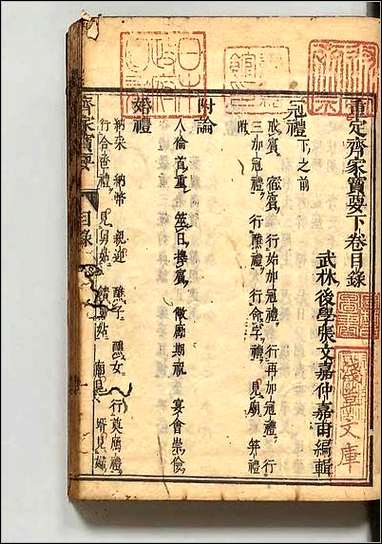 重定齊家寶要下卷目錄
武林後學張文嘉仲嘉甫編輯
冠禮下之前
戒賓 宿賓 行始加冠禮 行再加冠禮 行
三加冠禮 行醮禮 行命字禮 見廟 笄禮
附
附論
人倫首重 筮日擇賓 儆廟期視 宴會崇儉
婚禮
納采 納幣 親迎 醮子 醮女 行奠雁禮
行合巹禮 見舅姑 饋舅姑 廟見 婿見婦
齊家寶要 目錄
淺草文庫
圖書